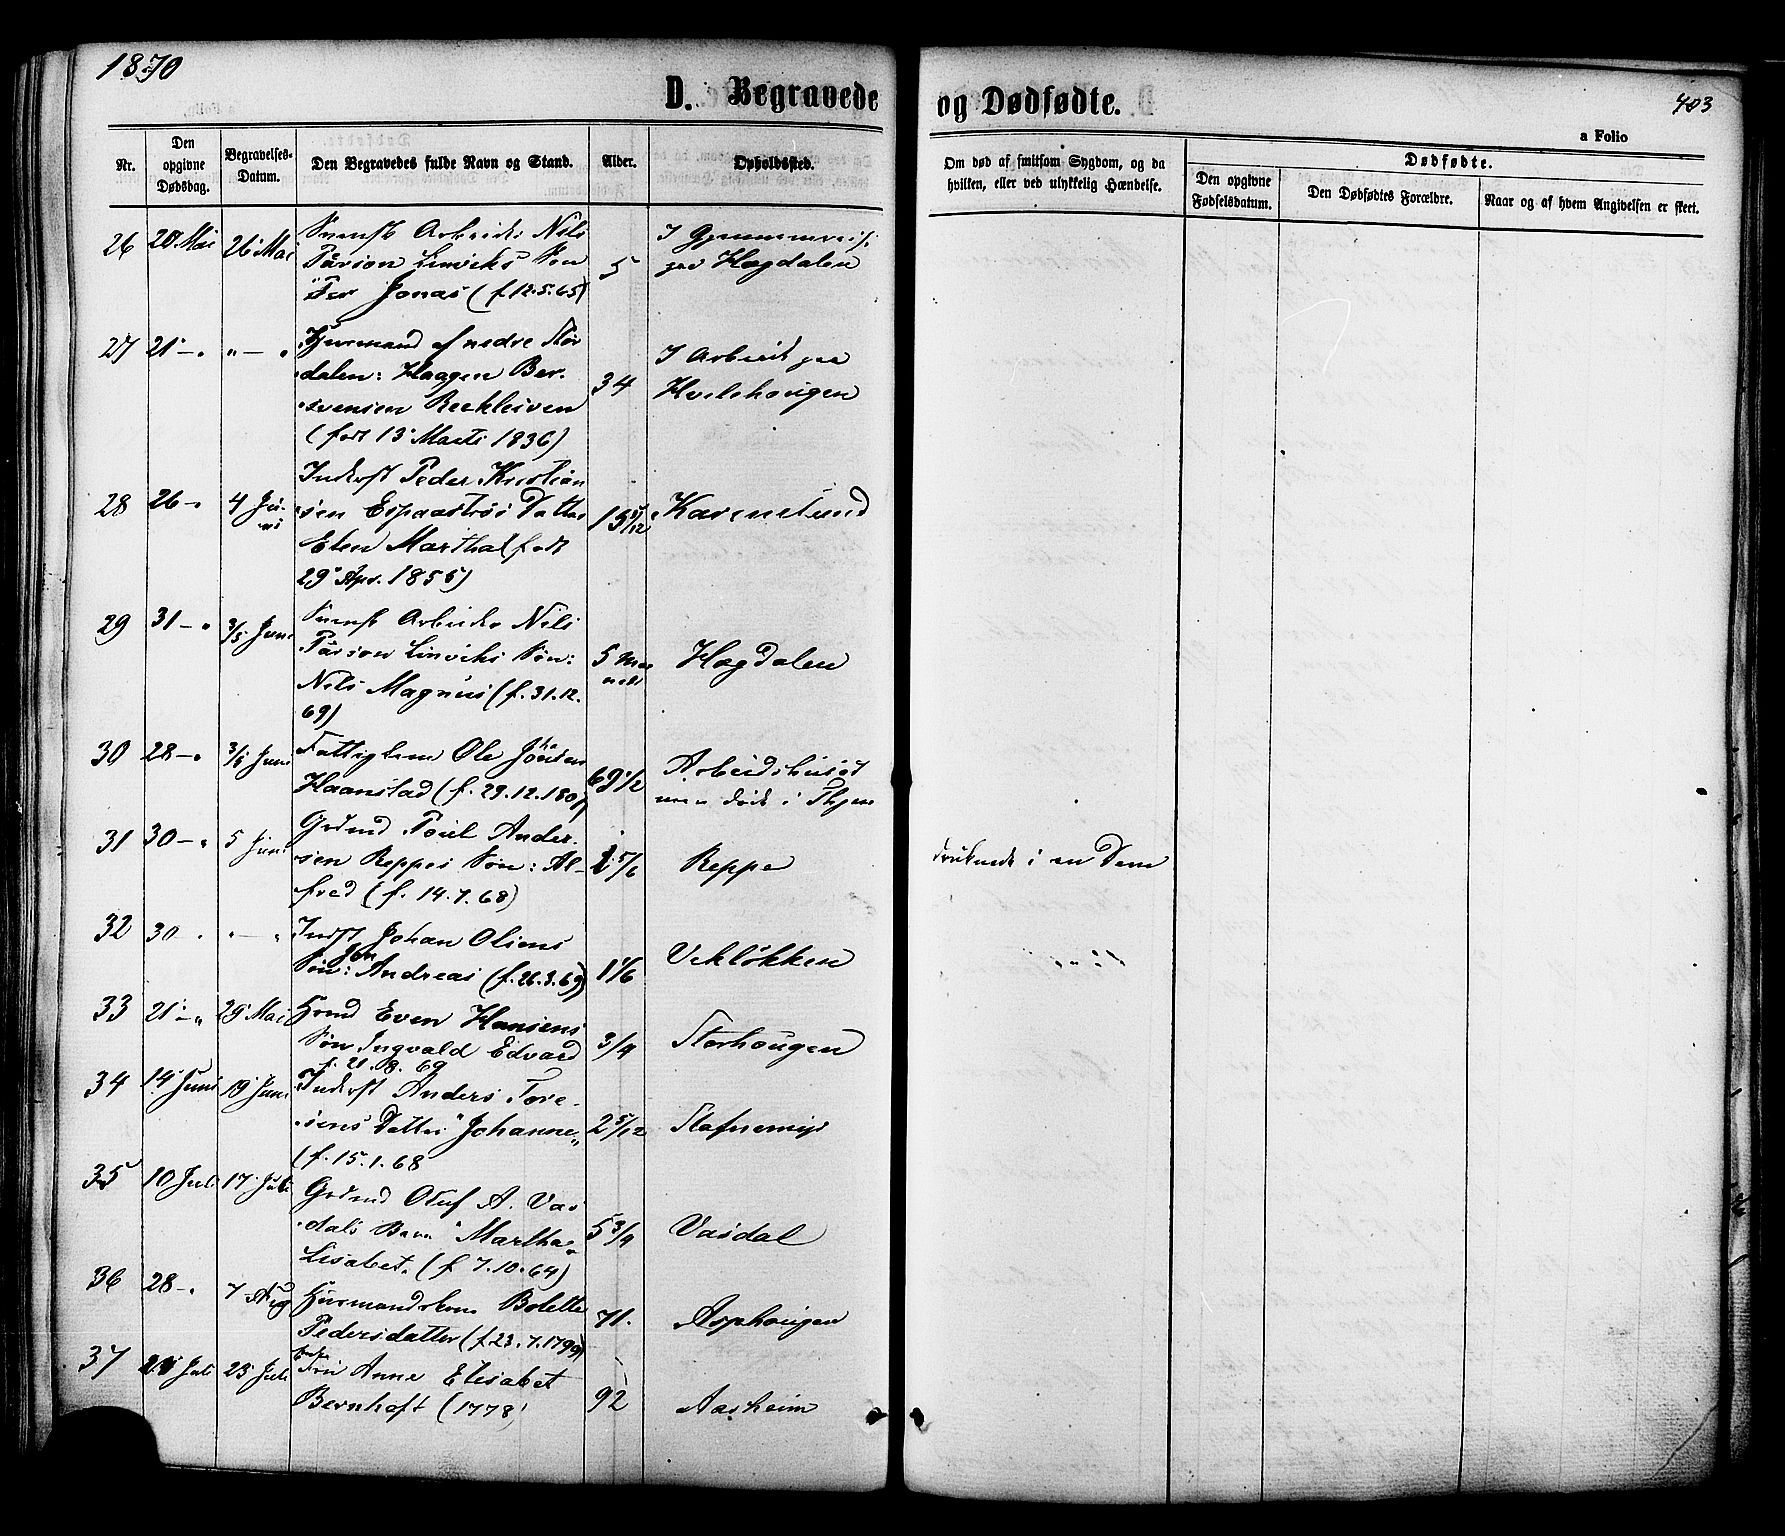 1870
D. Begravede
og Dødfødte.
403
a Folio
Nr.
Den opgivne Dødsdag.
Begravelses-Datum.
Den Begravedes fulde Navn og Stand.
Alder.
Opholdssted.
Om død af smitsom Sygdom, og da hvilken, eller ved ulykkelig Hændelse.
Dødfødte.
Den opgivne Fødselsdatum.
Den Dødfødtes Forældre.
Naar og af hvem Angivelsen er skeet.
26 20 Mai 26 Mai Svensk Arbeider Nils
Pärson Linviks Søn
Per Jonas (f. 12.5.65)
5
Hægdalen
27 21 - " " - " Huusmand af nedre Stør
dalen: Haagen Ber-
svensen Reeklesven
(født 13 Marts 1836)
34
I Arbeide paa
Hvilehougen
28 26 - " 4 Ju-
ni
Inderst Peder Kristian
sen Espaastrøs Datter
Elen Martha (født
29 Apr. 1855)
15 1/12
Karenslund
29 31 - " 3/5 Juni Svensk Arbeider Nils
Pärson Linviks Søn:
Nils Magnus (f. 31.12.
69)
5 Maa
neder
Hægdalen
30 28 - " 3/5 Juni Fattiglem Ole Jonsen
Haanstad (f. 29.12.1801)
69 1/2
Arbeidshuset
men døde i Thjem
31 30 - " 5 Juni Grdmd Poul Ander-
sen Reppes Søn: Al-
fred (f. 14.7.68)
1 5/6
Reppe
druknede i en Dam
32 30 - " " - " Indst Johan Olsens
Søn: Jon Andreas (f. 26.3.69)
1 1/6
Vekløkken
33 21 - " 29 Mai Hmd Even Hansens
Søn Ingvald Edvard
f. 21.8.69
3/4
Storhougen
34 14 Juni 19 Juni Inderst Anders Tore-
sens Datter "Johanne"
(f. 15.1.68
2 5/12
35 10 Juli 17 Juli Grdmd Oluf A. Vas
dals Barn "Martha
Lisabet. (f 7.10.64)
5 3/4
Vasdal
36 28 - " 7 Aug Huusmandskone Bolette
Pedersdatter (f. 23.7.1799)
71.
Asphougen
37 Juli 23 Juli Enke
Fru Anne Elisabet
Bernhoft (1778)
92
Aasheim